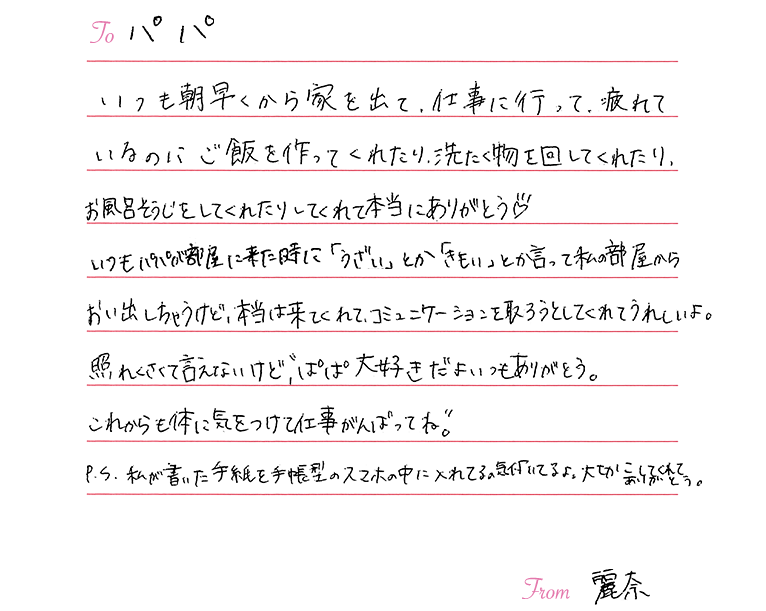 To パパ
いつも朝早くから家を出て、仕事に行って、疲れて
いるのにご飯を作ってくれたり、洗たく物を回してくれたり、
お風呂そうじをしてくれたりしてくれて本当にありがとう♡
いつもパパが部屋に来た時に「うざい」とか「きもい」とか言って私の部屋から
おい出しちゃうけど、本当は来てくれて、コミュニケーションを取ろうとしてくれてうれしいよ。
照れくさくて言えないけど、ぱぱ大好きだよいつもありがとう。
これからも体に気をつけて仕事がんばってね!
P.S. 私が書いた手紙を手帳型のスマホの中に入れてるの気付いてるよ。大切にしてくれてありがとう。
From 麗奈